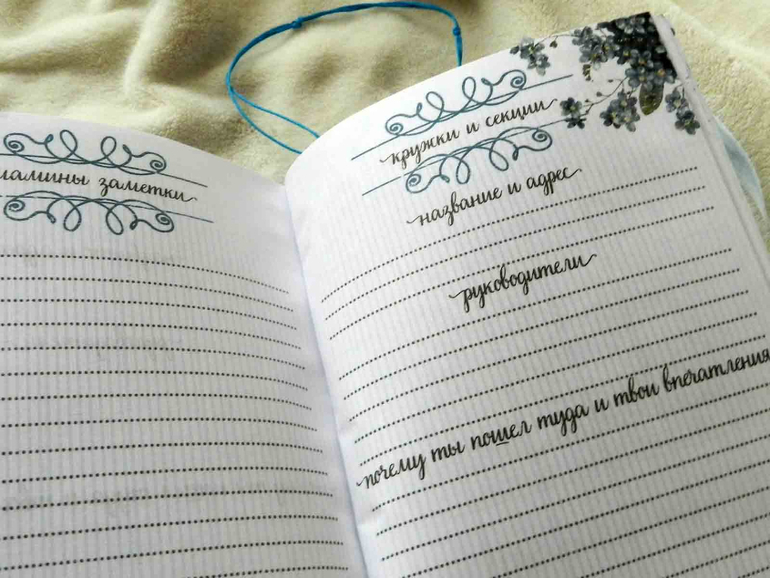 мамины заметки
кружки и секции
название и адрес
руководители
почему ты пошел туда и твои впечатления